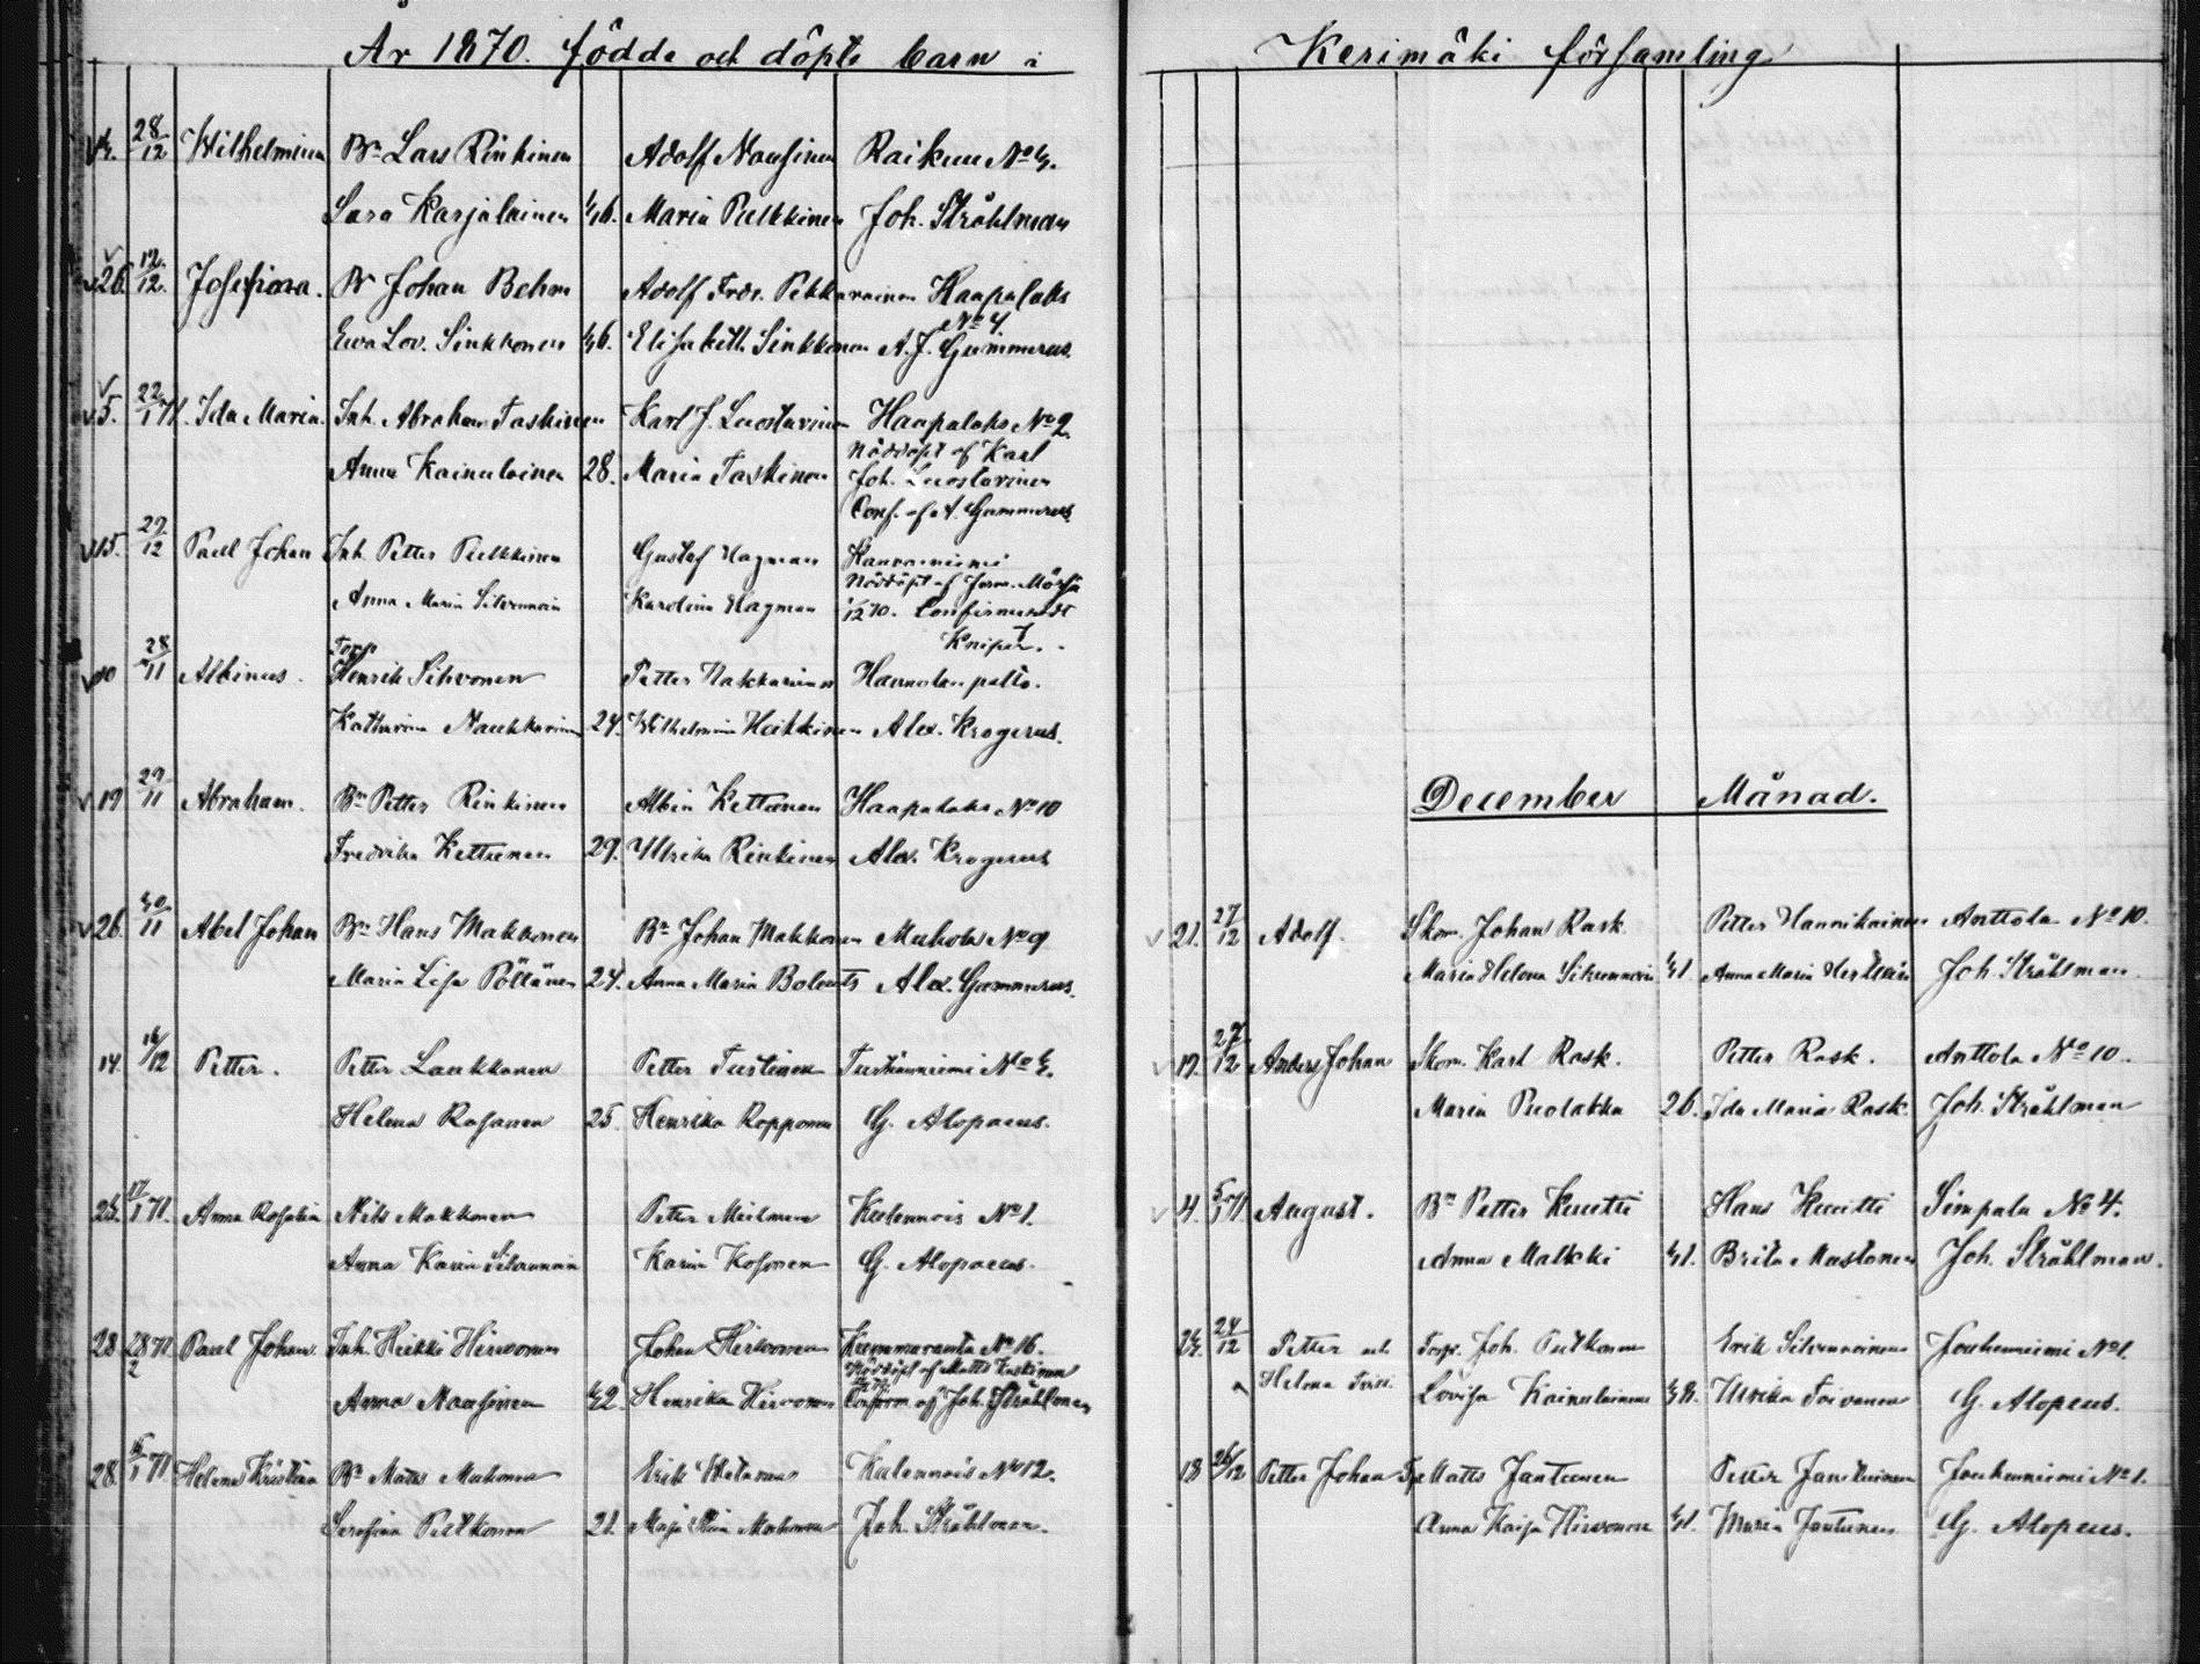 År 1870. födde och döpte barn i
Kerimäki församling
28/12 Wilhelmina Bn Lars Rinkinen Adolf Nousinen Raikuu No 4.
Sara Karjalainen 46. Maria Pulkkinen Joh. Stråhlman
26. 12/12. Josefina. Bn Johan Behm Adolf Fredr. Pekkarainen Haapalaks No 4
Ewa Lov. Sinkkonen 46. Elisabeth Sinkkonen A. J. Gummerus.
5. 22/1 71. Ida Maria. Inh. Abraham Taskinen Karl J. Luostarinen Haapalaks No 2
Anna Kainulainen 28. Maria Taskinen Nöddöpt af Karl
Joh. Luostarinen
Conf. af A. Gummerus.
15. 27/12 Paul Johan Inh. Petter Pulkkinen Gustaf Hagman
Anna Maria Silvennoin Karolina Hagman Nöddöpt af
Confirmeradt
28/11 Albinus. Torp. Henrik Sihvonen Petter
Katharina 24. Wilhelmina Heikkinen Alex. Krogerus.
19 29/11 Abraham. Bn Petter Rinkinen Albin Kettunen Haapalaks No 10
Fredrika Kettunen 29. Ulrika Rinkinen Alex. Krogerus
26. 30/11 Abel Johan Bn Hans Makkonen Bn Johan Makkonen Muhola No 9
Maria Lisa Pöllänen 24. Anna Maria Alex. Gummerus.
14. 16/12 Petter. Petter Laukkanen Petter Tustinen Tustianniemi No
Helena Rosanen 25. Henrika Ropponen G. Alopaeus.
24. 17/1 71. Anna Rosalia Nils Makkonen Petter Kulennois No 1.
Anna Karin Silvennoin Karin Kosonen G. Alopaeus.
28 28/2 71 Paul Johan. Inh. Heikki Hirvonen Johan Hirvonen Kumpuranta No 16.
Nöddöpt af Matts
Anna Nousinen 42. Henrika Hirvonen Confirm. af Joh. Stråhlman
28. 15/1 71 Helena Kristina Bn Matts Muhonen Erik Kulennois No 12.
Serafina Pulkkonen 21. Maja Stina Muhonen Joh. Stråhlman.
December Månad.
21. 27/12 Adolf. Skom. Johan Rask Petter Hannikainen Anttola No 10.
Maria Helena Silvennoin 41 Anna Maria Joh. Stråhlman
19. 27/12 Anders Johan Skom. Karl Rask. Petter Rask. Anttola No 10.
Maria Puolakka 26. Ida Maria Rask. Joh. Stråhlman
4. 5/1 71 August. Bn Petter Kuutti Hans Kuutti Simpala No 4.
Anna Malkki 41. Brita Mustonen Joh. Stråhlman.
24. 24/12 Petter och Torp. Joh. Pulkkonen Erik Silvennoinen Jouhenniemi No 1.
Helena Tvill. Lovisa Kainulainen 48. Ulrika Toivonen G. Alopeus.
18 26/12 Petter Johan Tp Matts Jantunen Petter Jantunen Jouhenniemi No 1.
Anna Kaisa Hirvonen 41. Maria Jantunen G. Alopeus.